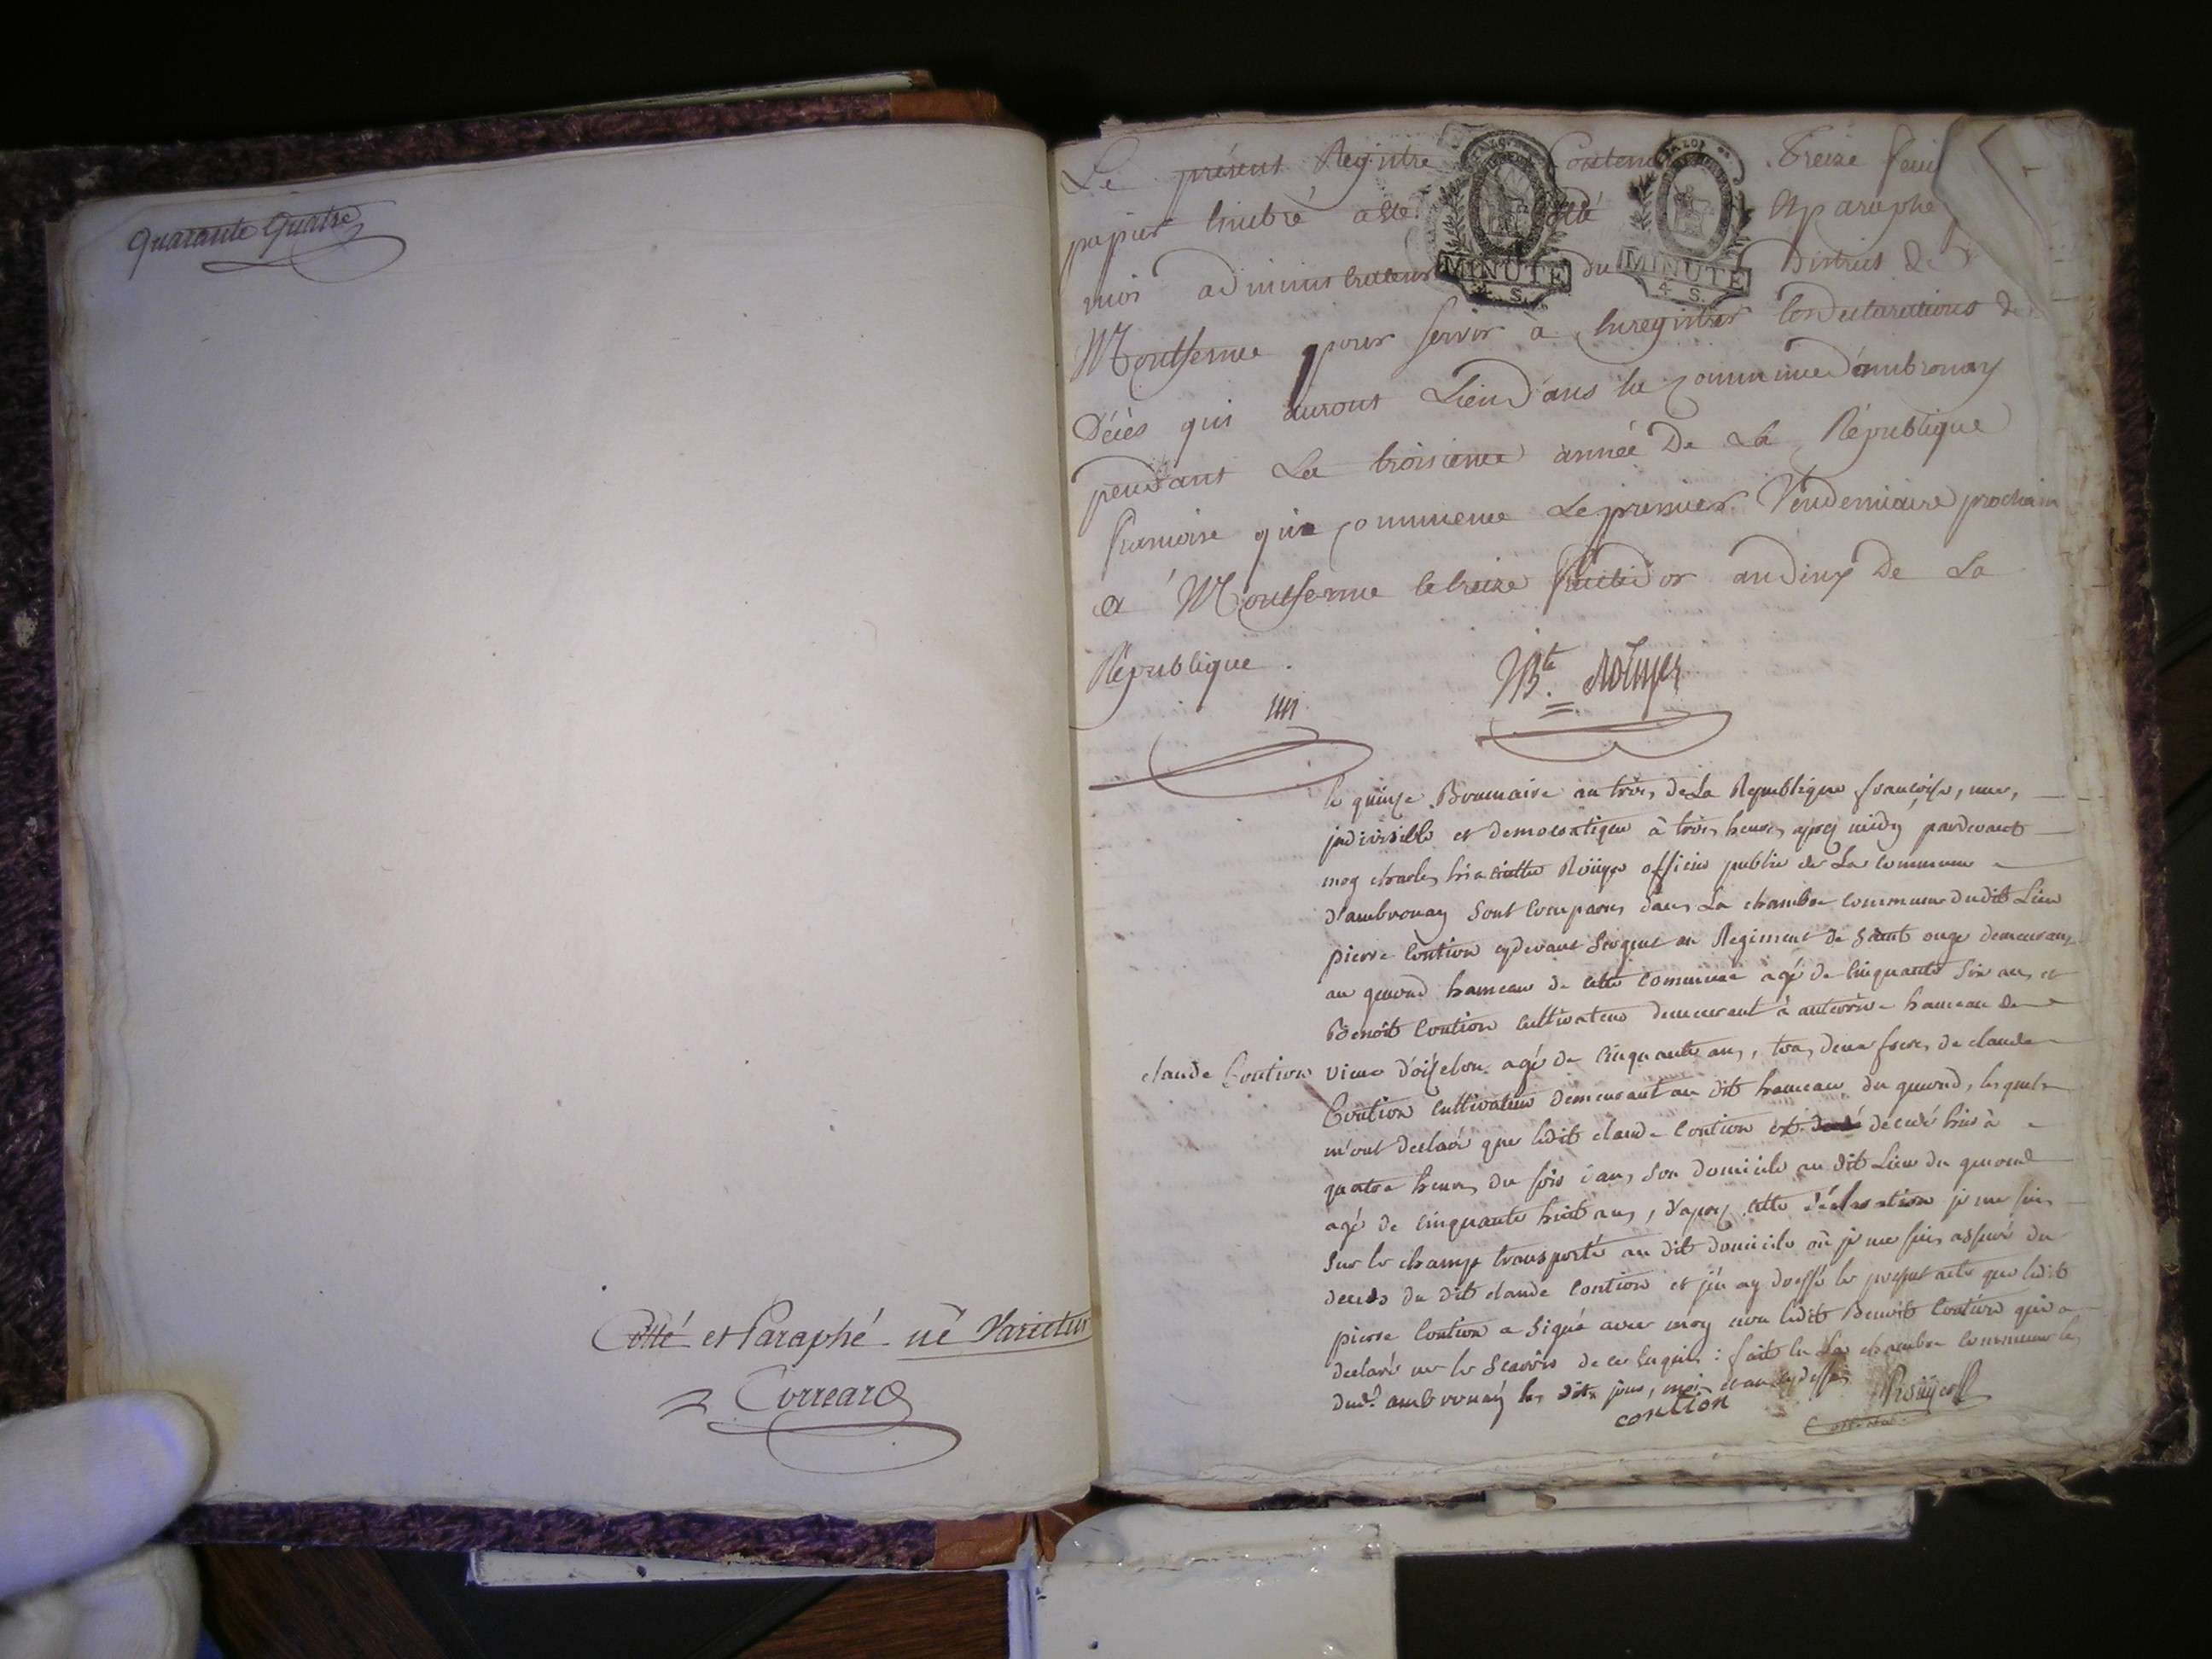 Quarante Quatre
Cotté et Paraphé né Varietur
Correard
Le présent Registre Contenant Treize feuil
papier timbré a été coté Aparaphé
moi administrateur du District de
MINUTE
4. S.
MINUTE
4. S.
Montferme pour servir à Enregistrer les déclarations de
Décès qui auront Lieu dans la Commune d'ambronay
pendant La troisieme année De La République
françoise qui commence Le premier Vendemiaire prochain
a Montferme le treize fructidor an Deux De La
République .
le quinze Brumaire an trois de La Republique françoise, une,
indivisible et democratique à trois heures apres midy pardevant
moy charles hiacinthe Roüyer officier public de La commune
d'ambronay sont comparus dans La chambre commune dudit Lieu
pierre Coution cydevant Sergent au Regiment de Saint onge demeurant
au genoud hameau de cette commune agé de Cinquante six ans et
Benoit Coution cultivateur demeurant à hameau de
claude Coution
vieux d'oiselon agé de Cinquante ans, tous deux freres de claude
Coution cultivateur demeurant au dit hameau du genoud, lesquels
m'ont declaré que ledit claude Coution est décédé hier à
quatre heures du soir dans son domicile au dit Lieu du genoud
agé de cinquante huit ans, d'apres cette déclaration je me suis
sur le champ transporté au dit domicile où je me suis assuré du
deces du dit claude Coution et j'en ay dressé le present acte que ledit
pierre Coution a signé avec moy non ledit Benoit Coution qui a
declaré ne le scavoir de ce Enquis : fait en La chambre commune
dud.t ambronay les dits jour, mois et an cy dessus
coution Roüyer